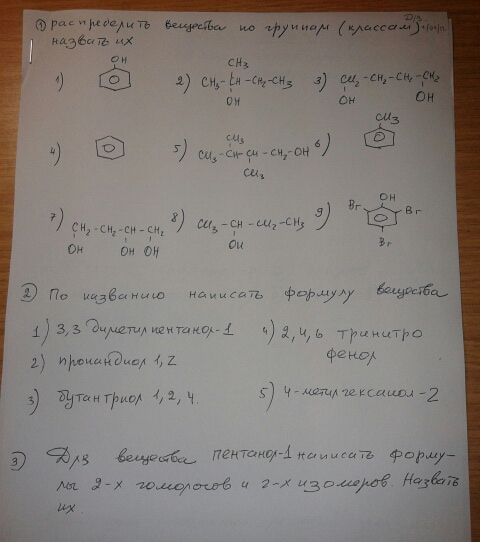 Д/З
① распределить вещества по группам (классам)
назвать их
1) OH
2) CH₃
CH₃-CH-CH₂-CH₃
OH
3) CH₂-CH₂-CH₂-CH₂
OH OH
4)
5) CH₃
CH₃-CH-CH-CH₂-OH
CH₃
6) CH₃
7) CH₂-CH₂-CH-CH₂
OH OH OH
8) CH₃-CH-CH₂-CH₃
OH
9) OH
Br Br
Br
② По названию написать формулу вещества
1) 3,3 диметилпентанол-1
2) пропандиол 1,2
3) бутантриол 1,2,4.
4) 2,4,6 тринитро
фенол
5) 4-метилгексанол-2
③ Для вещества пентанол-1 написать форму-
лы 2-х гомологов и 2-х изомеров. Назвать
их.